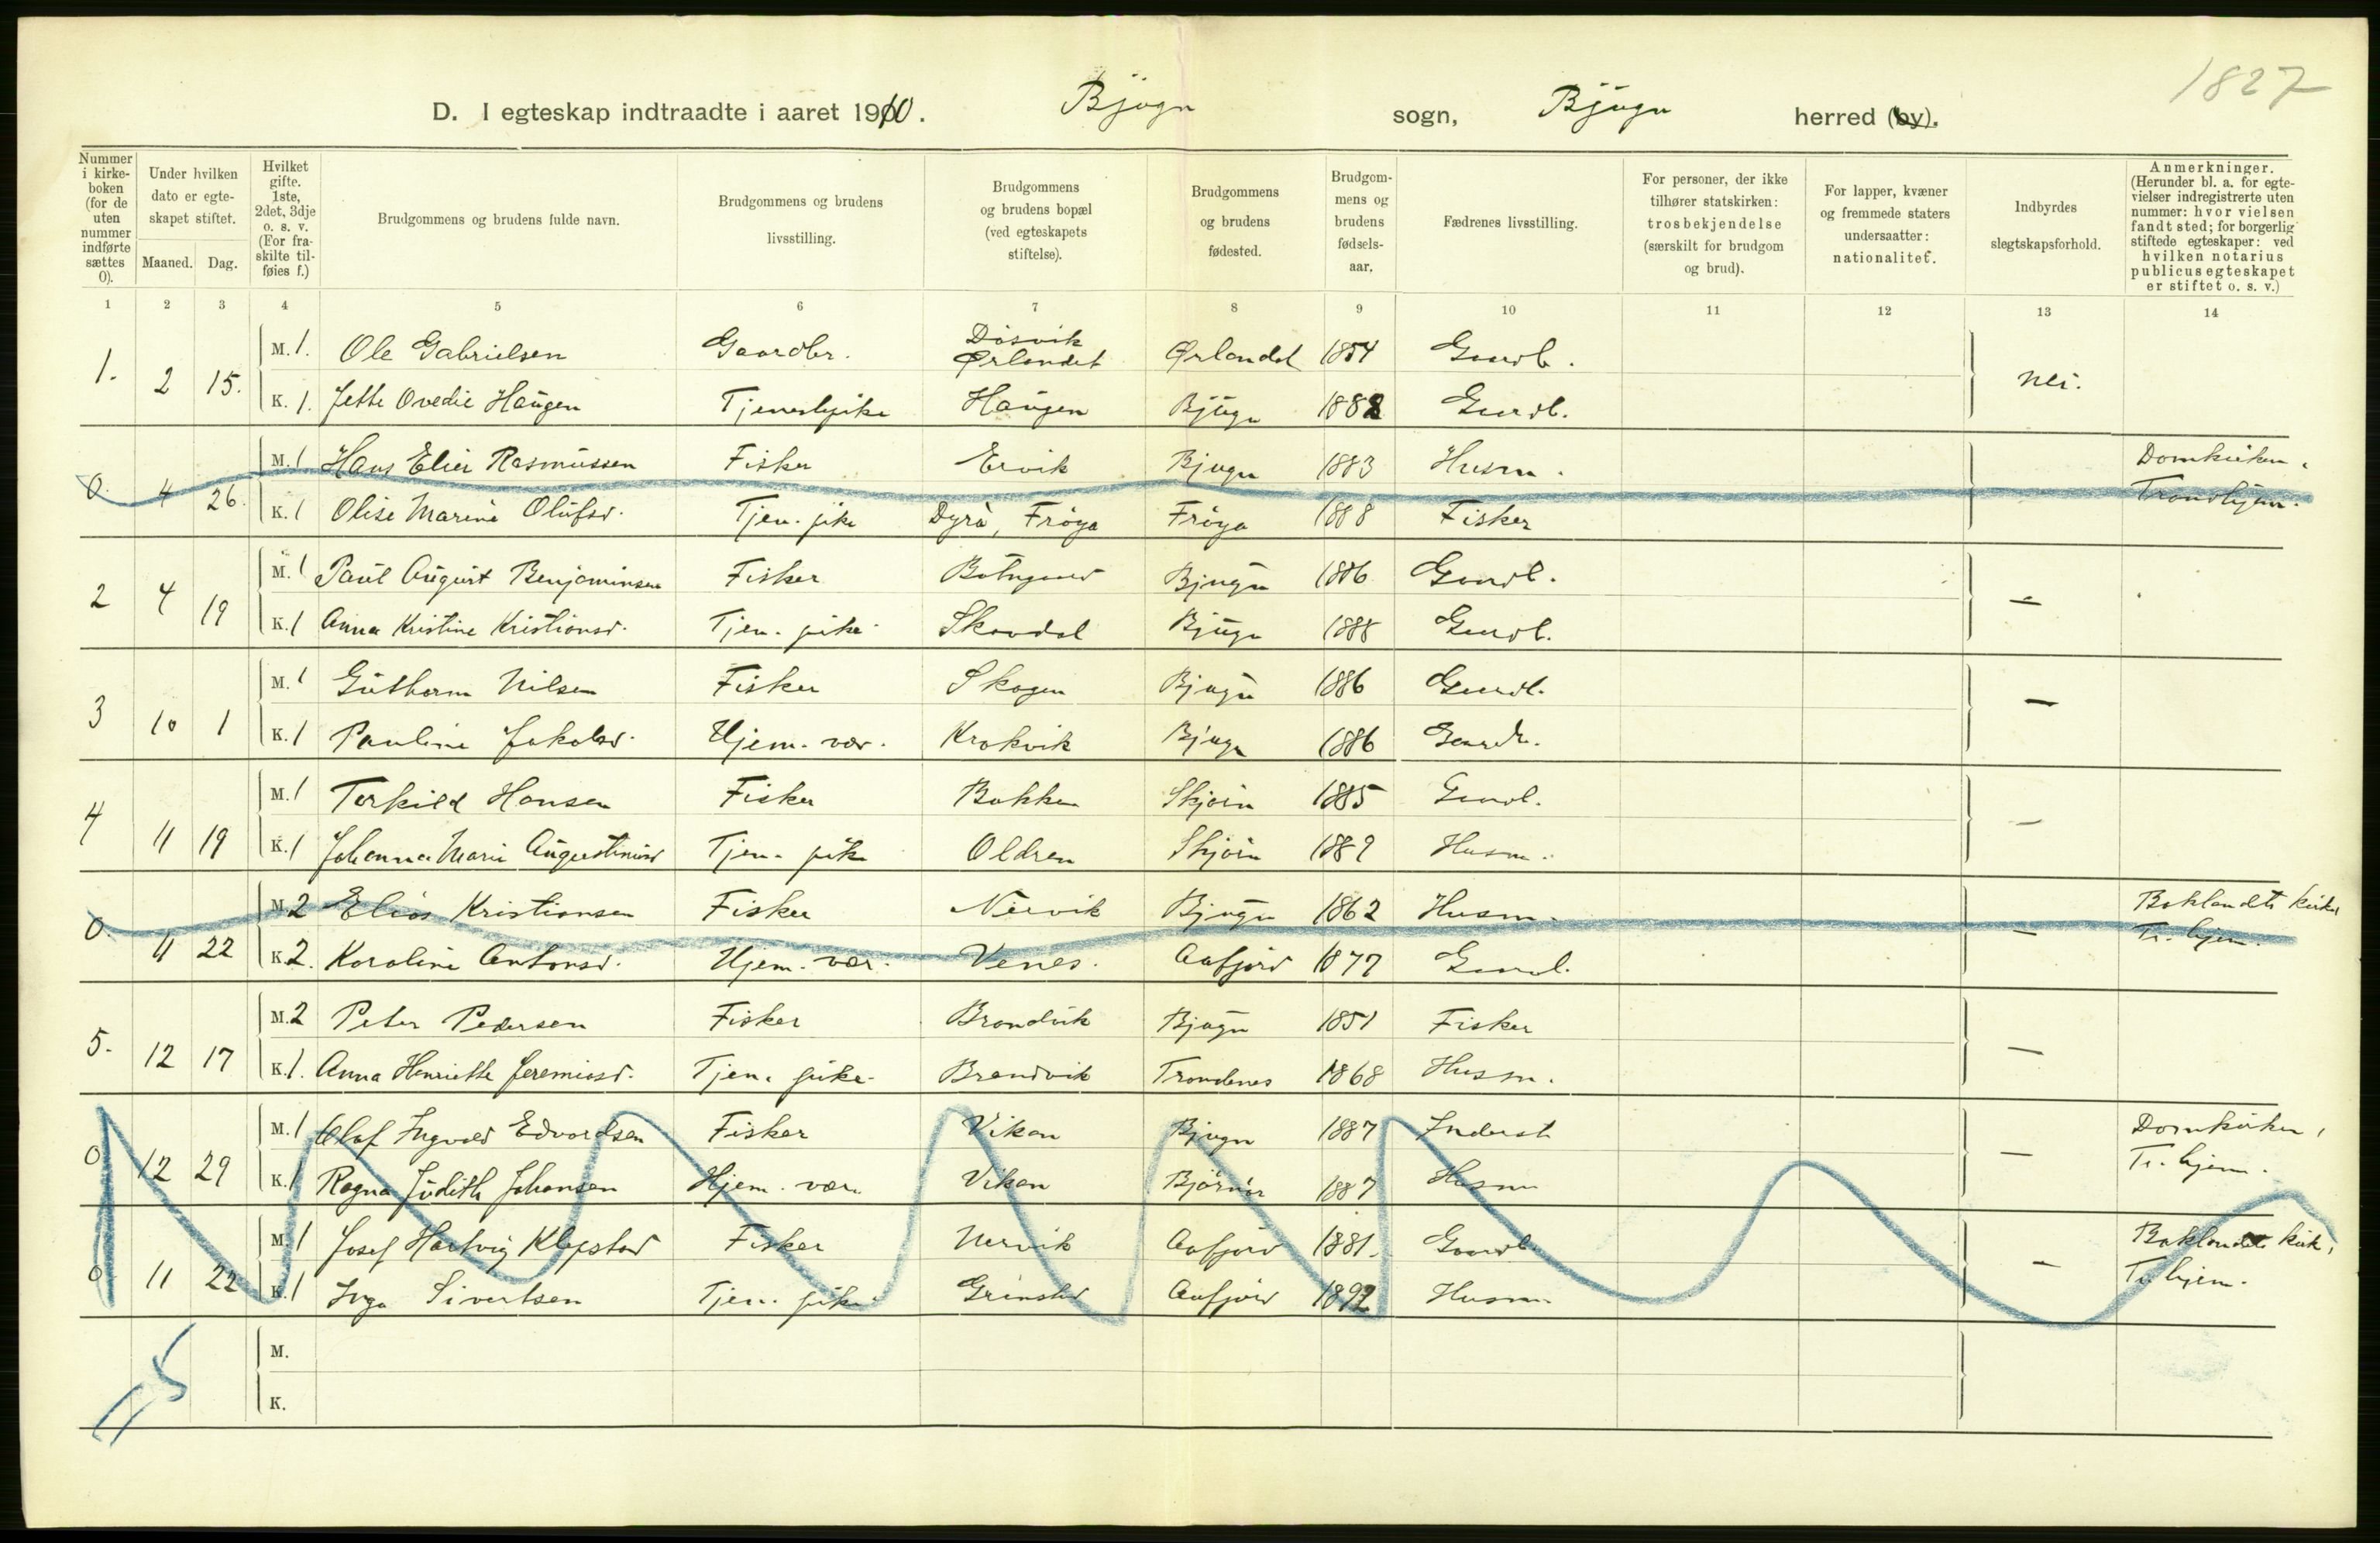 1827
D. I egteskap indtraadte i aaret 1910. Bjugn sogn, Bjugn herred (by).
Nummer i kirkeboken (for de uten nummer indførte sættes 0).
Under hvilken dato er egteskapet stiftet.
Maaned. Dag.
Hvilket gifte. 1ste, 2det, 3dje o. s. v. (For fraskilte tilføies f.)
Brudgommens og brudens fulde navn.
Brudgommens og brudens livsstilling.
Brudgommens og brudens bopæl (ved egteskapets stiftelse).
Brudgommens og brudens fødested.
Brudgommens og brudens fødselsaar.
Fædrenes livsstilling.
For personer, der ikke tilhører statskirken: trosbekjendelse (særskilt for brudgom og brud).
For lapper, kvæner og fremmede staters undersaatter: nationalitet.
Indbyrdes slegtskapsforhold.
Anmerkninger. (Herunder bl. a. for egtevielser indregistrerte uten nummer: hvor vielsen fandt sted; for borgerlig stiftede egteskaper: ved hvilken notarius publicus egteskapet er stiftet o. s. v.)
1 2 3 4 5 6 7 8 9 10 11 12 13 14
1. 2 15. M. 1. Ole Gabrielsen Gaardbr. Døsvik Ørlandet Ørlandet 1854 Gaardb. nei.
K. 1. Jette Ovedie Haugen Tjenestepike Haugen Bjugn 1882 Gaardb.
0. 4 26. M. 1 Hans Elier Rasmussen Fisker Ervik Bjugn 1883 Husm. Domkirken, Trondhjem.
K. 1 Olise Marine Olufsd. Tjen. pike Dyrø, Frøya Frøya 1888 Fisker
2 4 19 M. 1 Paul August Benjaminsen Fisker Botngaard Bjugn 1886 Gaardb. —
K. 1 Anna Kristine Kristiansd. Tjen. pike Skavdal Bjugn 1888 Gaardb.
3 10 1 M. 1 Guthorm Nilsen Fisker Skogen Bjugn 1886 Gaardb. —
K. 1 Pauline Jakobsd. Hjem. vær. Krokvik Bjugn 1886 Gaardb.
4 11 19 M. 1 Terkild Hansen Fisker Bakken Skjørn 1885 Gaardb. —
K. 1 Johanna Marie Augustinusd Tjen. pike Oldren Skjørn 1889 Husm.
0. 11 22 M. 2 Elias Kristiansen Fisker Nervik Bjugn 1862 Husm. — Baklandets kirke, Tr. hjem.
K. 2. Karoline Antonsd. Hjem. vær. Venes. Aafjord 1877 Gaardb.
5. 12 17 M. 2 Peter Pedersen Fisker Brandvik Bjugn 1851 Fisker —
K. 1. Anna Henriette Jeremiasd. Tjen. pike Brandvik Trondenes 1868 Husm.
0 12 29 M. 1 Olaf Ingvald Edvardsen Fisker Vikan Bjugn 1887 Inderst — Domkirken, Tr. hjem.
K. 1 Ragna Judith Johansen Hjem. vær. Vikan Bjørnør 1887 Husm
0. 11 22 M. 1 Josef Hartvig Klepstad Fisker Nervik Aafjord 1881. Gaardb. — Baklandets kirk, Tr. hjem.
K. 1 Inga Sivertsen Tjen. pike Grinstad Aafjord 1892 Husm.
M.
K.
15